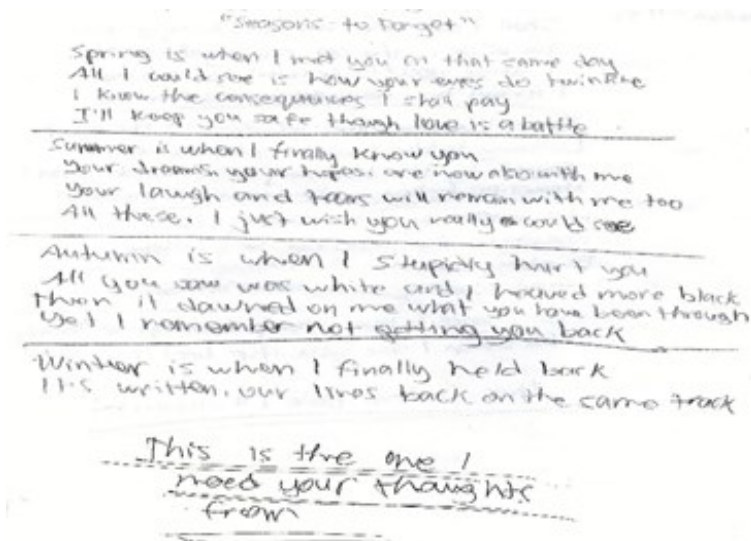 "Seasons to Forget"
Spring is when I met you on that same day
All I could see is how your eyes do twinkle
I know the consequences I shall pay
I'll keep you safe though love is a battle
Summer is when I finally know you
Your dreams, your hopes, are now also with me
Your laugh and tears will remain with me too
All these, I just wish you really could see
Autumn is when I stupidly hurt you
All you saw was white and I more black
Then it dawned on me what you have been through
Yet I remember not getting you back
Winter is when I finally held back
It's written, our lines back on the same track
This is the one I
need your thoughts
from